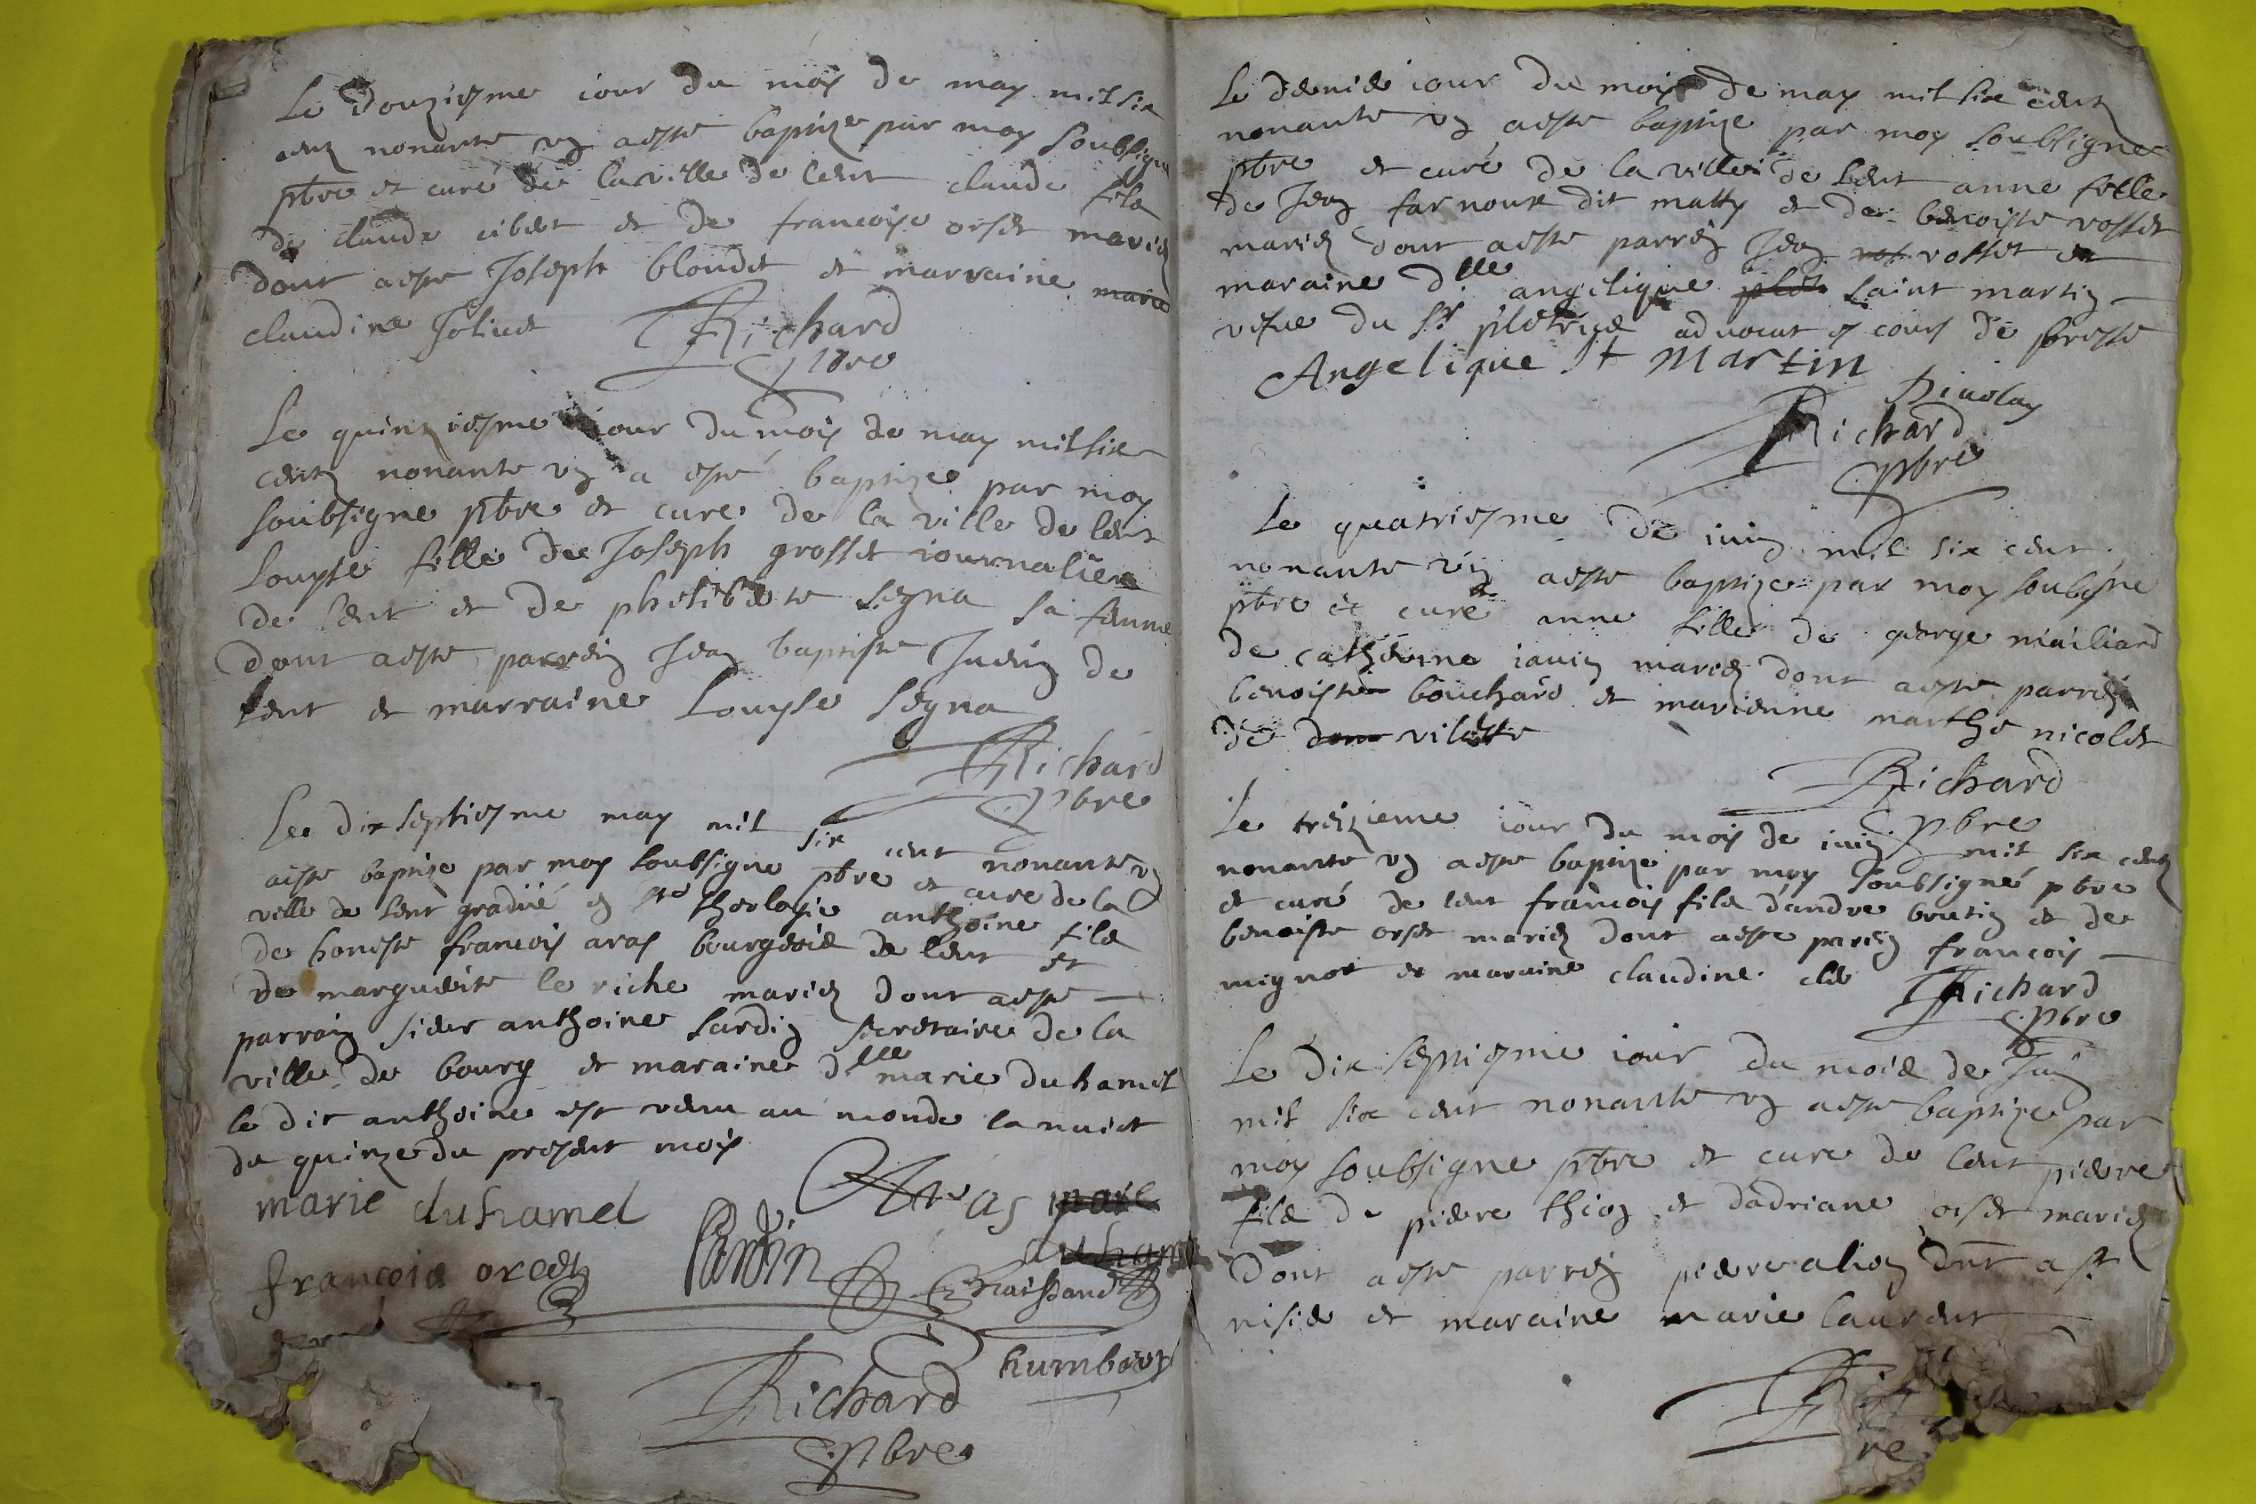 Le douziesme iour du moys de may mil six
cent nonante un a esté baptize par moy soubsigne
pbre et curé de la ville de lent claude fils
de claude cibert et de francoise orset mariez
dont a esté Joseph blondet et marraine marie
claudine Joliuet
Richard
pbre
Le quinziesme iour du mois de may mil six
centz nonante un a esté baptize par moy
soubsigne pbre et cure de la ville de lent
Louyse fille de Joseph grosset iournalier
de lent et de philiberte segna sa femme
dont a esté parrein Jean baptiste Juenin de
lent et marraine Louyse segna
Richard
pbre
Le dix septiesme may mil six cent nonante un
a esté baptize par moy soubsigne pbre et cure de la
ville de lent gradué en ste theologie anthoine fils
de honeste francois aras bourgeois de lent et
de marguerite le riche mariez dont a esté
parrain sieur anthoine sardin secretaire de la
ville de bourg et maraine dlle marie duhamel
le dit anthoine est venu au monde la nuict
du quinze du present mois
marie duhamel
Aras marie
duhamel
francois orcet
sardin
Chaissand
humbert
Richard
pbre
Le dernier iour du mois de may mil six centz
nonante un a esté baptize par moy soubsigne
pbre et curé de la ville de lent anne fille
de Jean farnoux dit matty et de benoiste rosset
mariez dont a esté parrein Jean rosset et
maraine dlle angelique saint martin
vefue du sr piletrye aduocat es cours de bresse
Angelique St Martin
Niuolay
Richard
pbre
Le quatriesme de iuin mil six cent
nonante un a esté baptize par moy soubsigne
pbre et curé anne fille de george mailliard
de catherine iauin mariez dont a esté parrein
benoist bouchard et marienne marthe nicolet
de dom vilette
Richard
pbre
Le treizieme iour du mois de iuin mil six centz
nonante un a esté baptize par moy soubsigné pbre
et curé de lent francois fils dandre brutin et de
benoiste orset mariez dont a esté parein francois
mignot et maraine claudine cle
Richard
pbre
Le dix septiesme iour du mois de Juin
mil six cent nonante un a esté baptize par
moy soubsigne pbre et cure de lent pierre
fils de pierre thion et dadriane orset mariez
dont a esté parrein pierre alion dmt a st
nisier et maraine marie laurent